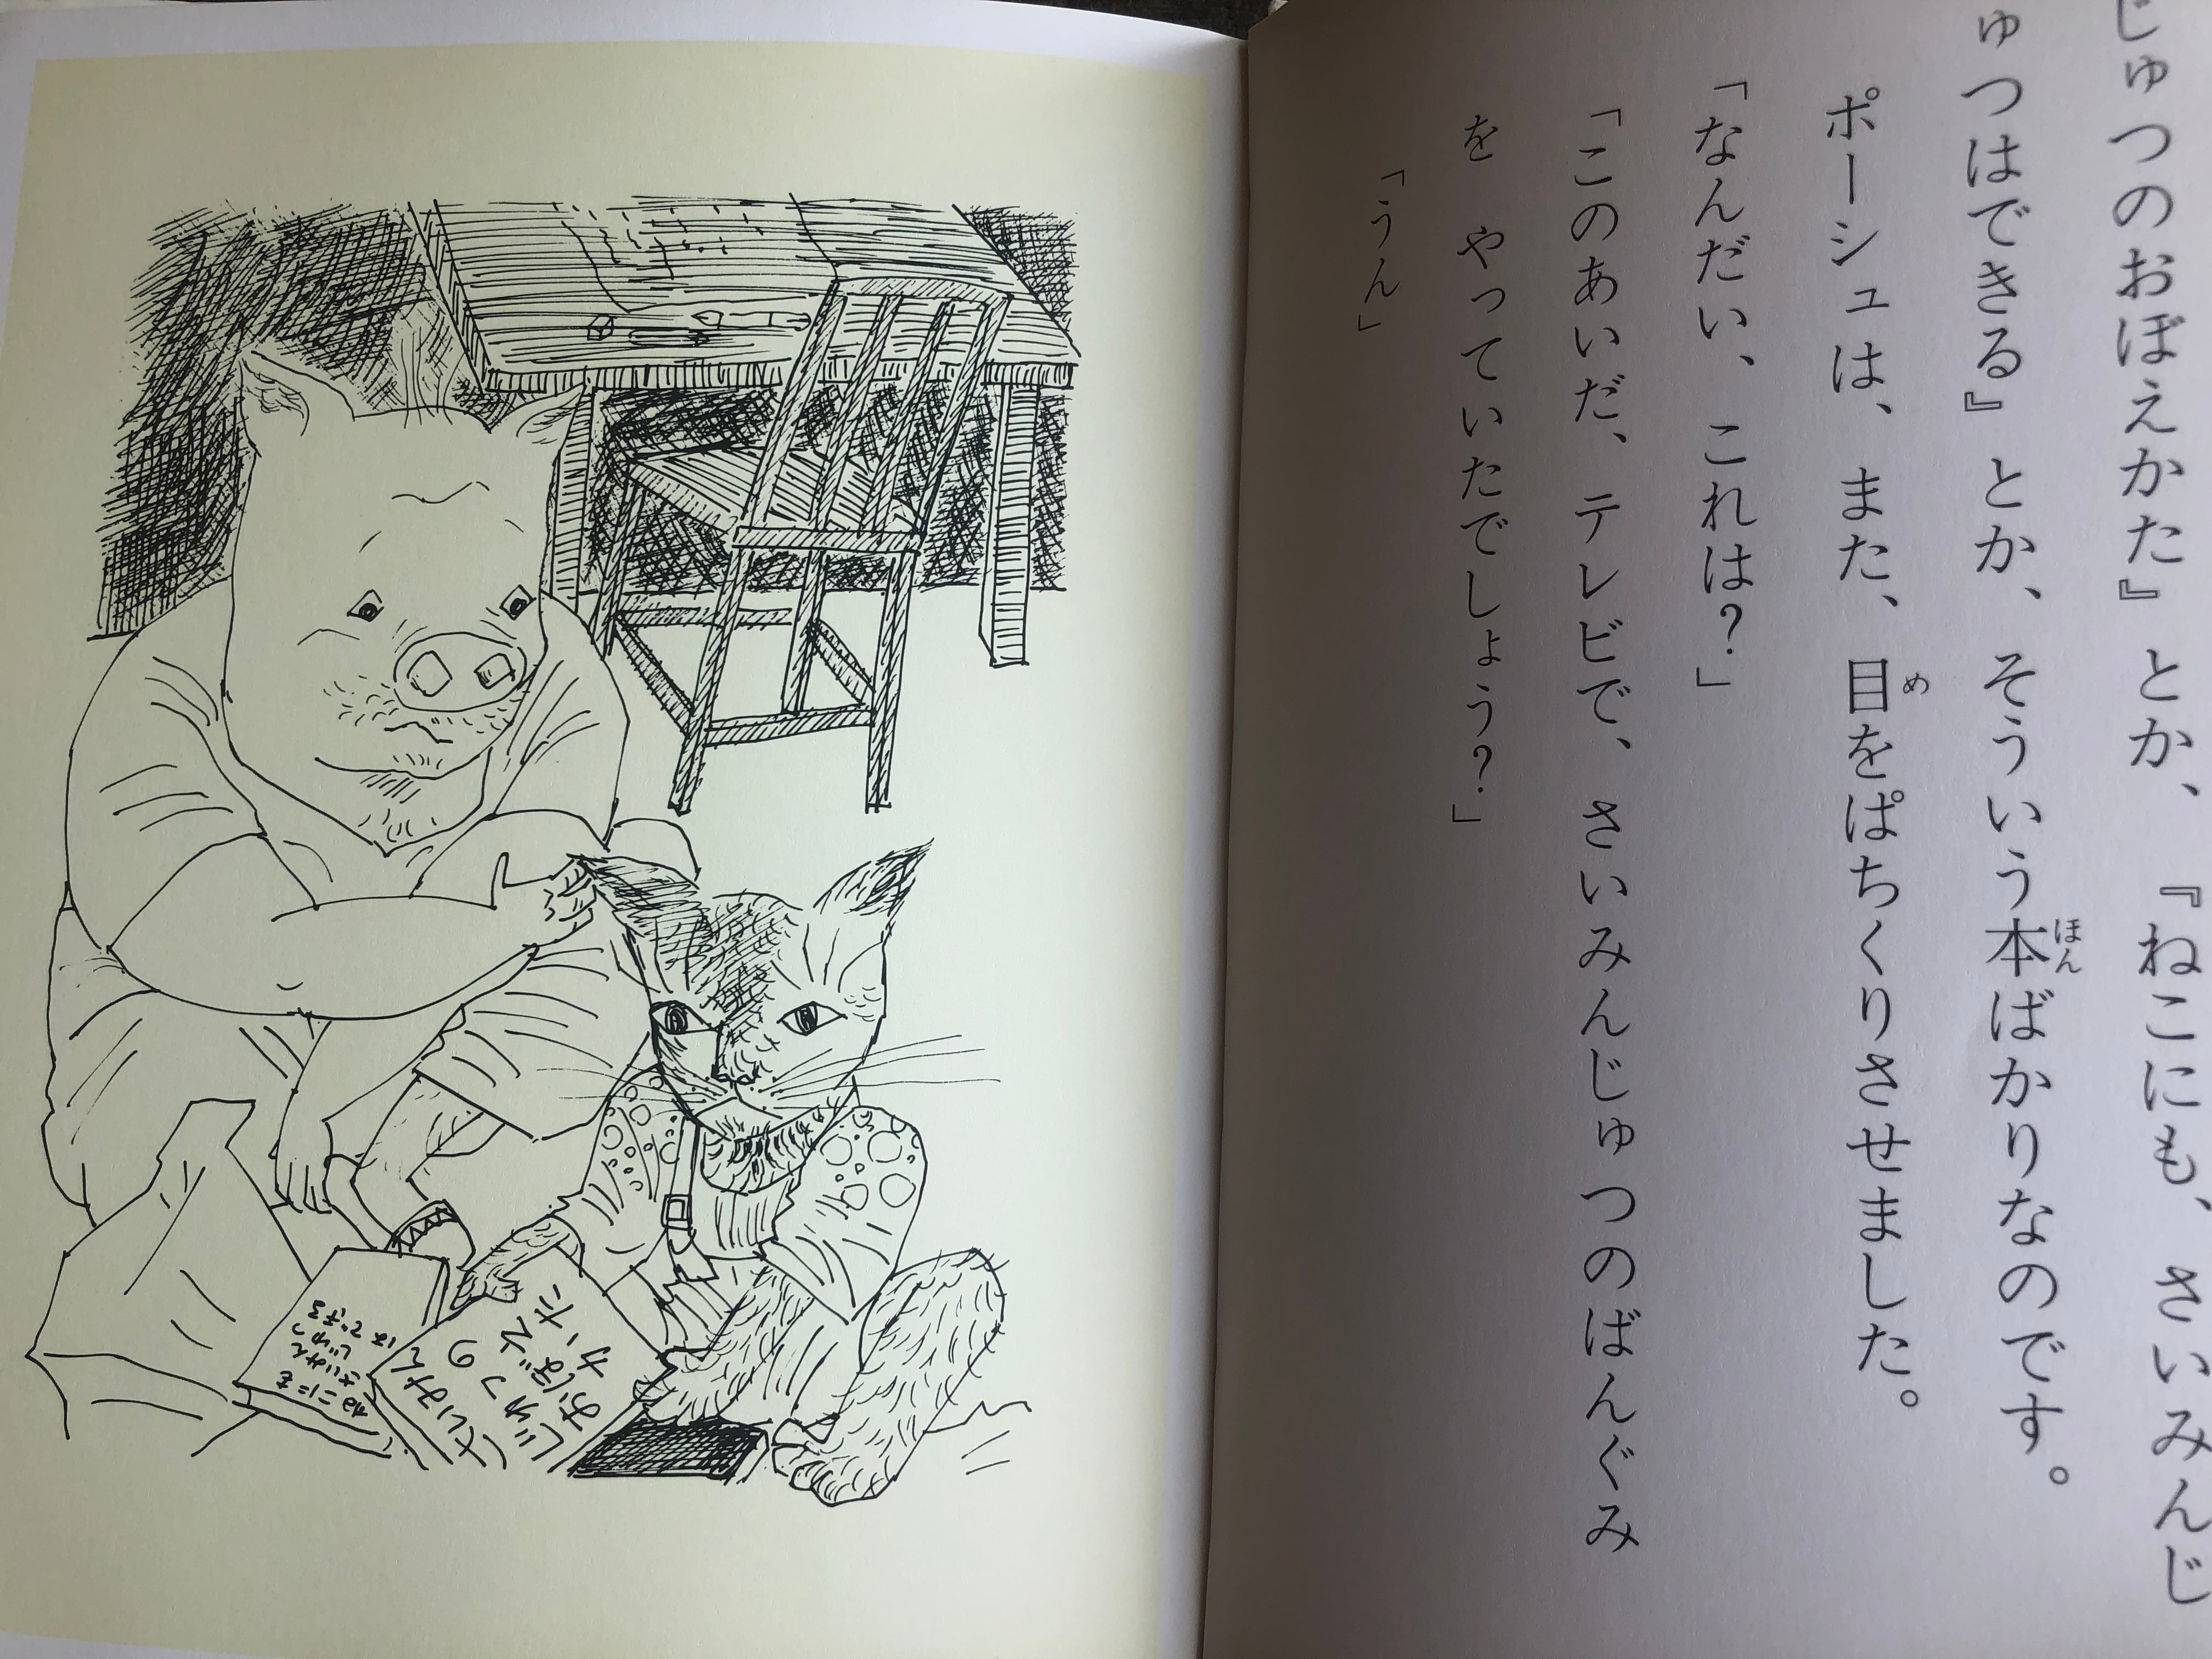 じゅつのおぼえかた』とか、『ねこにも、さいみんじ
ゅつはできる』とか、そういう本ばかりなのです。
ほん
ポーシュは、また、目をぱちくりさせました。
め
「なんだい、これは?」
「このあいだ、テレビで、さいみんじゅつのばんぐみ
を やっていたでしょう?」
「うん」
ねこにも
さいみん
じゅつ
はできる
さいみん
じゅつの